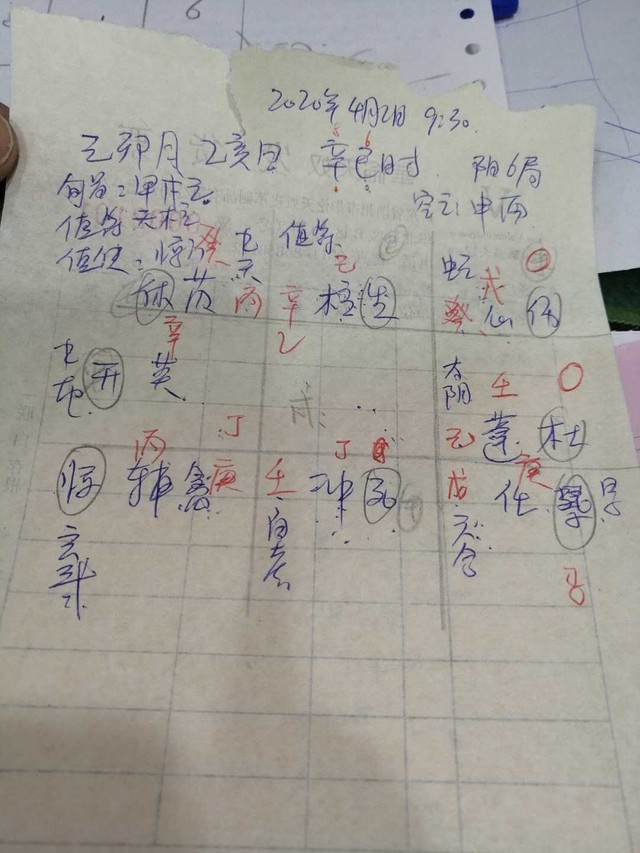 2020年4月2日 9:30.
己卯月 乙亥日 辛巳时. 阴6局
旬首:甲戌己. 空亡:申酉
值符 天柱
值使:惊门
癸 九天 值符 己 蛇 戊 〇
休 芮 丙 辛 柱 生 癸 心 伤
辛 乙
九地 开 英 太阴 壬 〇
己 蓬 杜
丙 丁 丁
惊 辅 禽 庚 壬 冲 死 戊 任 庚 景
玄武 白虎 六合
马